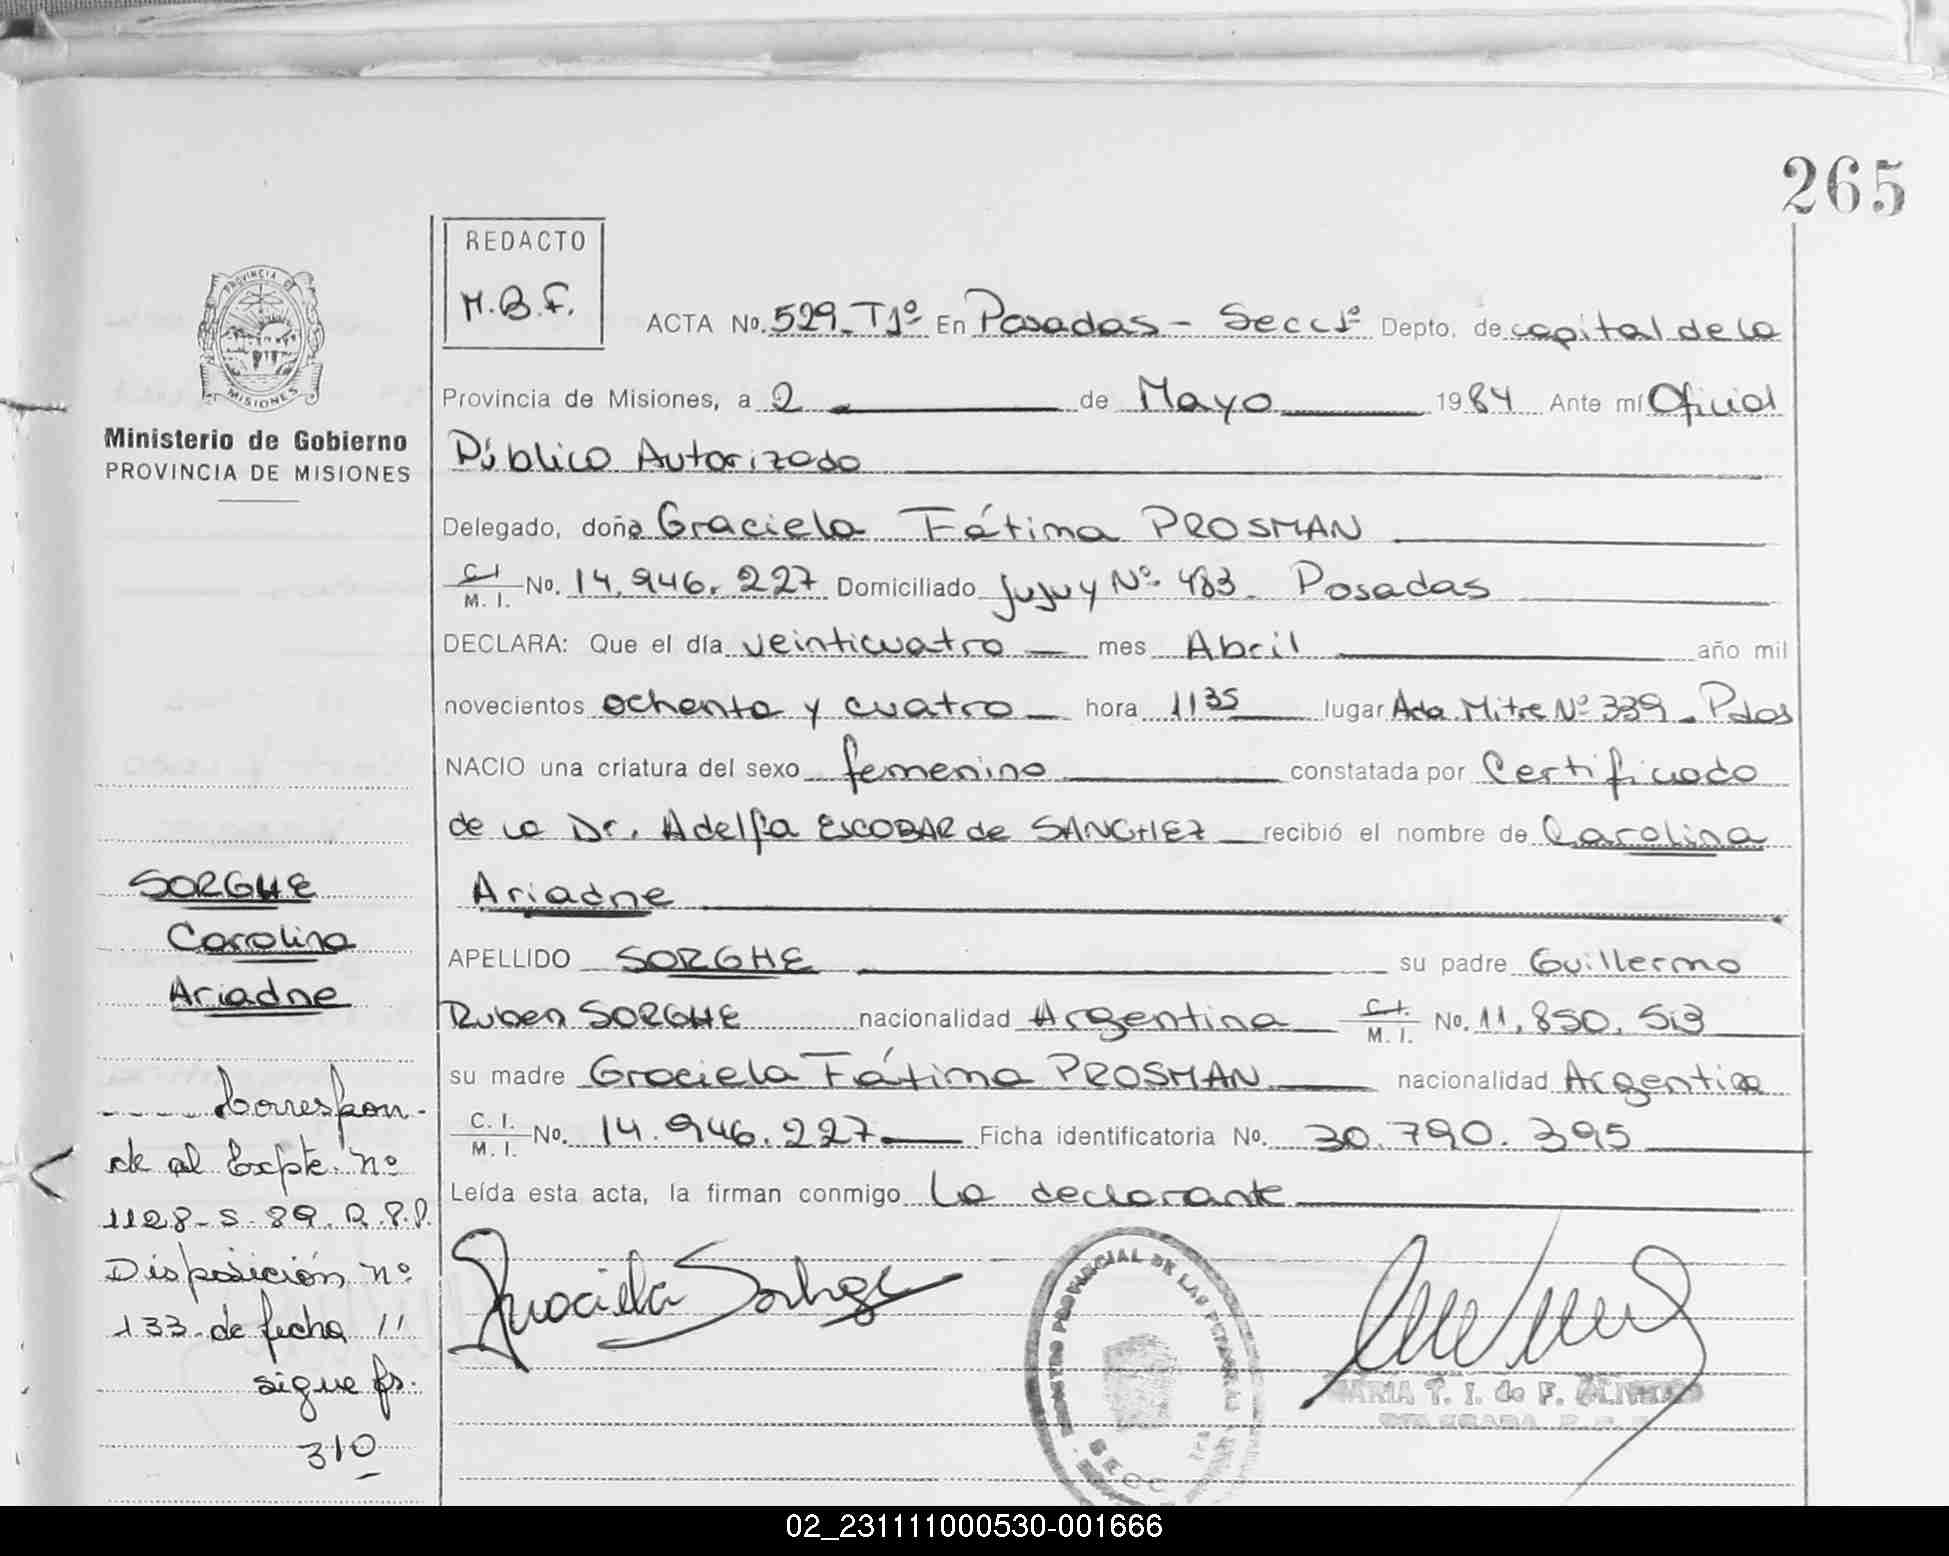 265
REDACTO
M.B.F.
ACTA No. 529. T1º En Posadas - Secc 1ª Depto. de capital de la
Provincia de Misiones, a 2 de Mayo 1984 Ante mí Oficial
Público Autorizado
Delegado, doña Graciela Fátima PROSMAN
C.I. M. I. No. 14.946.227 Domiciliado Jujuy Nº 483. Posadas
DECLARA: Que el día veinticuatro mes Abril año mil
novecientos ochenta y cuatro hora 1135 lugar Ada. Mitre Nº 339 - Pdas
NACIO una criatura del sexo femenino constatada por Certificado
de la Dr. Adelfa ESCOBAR de SANCHEZ recibió el nombre de Carolina
Ariadne
APELLIDO SORGHE su padre Guillermo
Ruben SORGHE nacionalidad Argentina C.I. M. I. No. 11.850.513
su madre Graciela Fátima PROSMAN nacionalidad Argentina
C. I. M. I. No. 14.946.227 Ficha identificatoria No. 30.790.395
Leída esta acta, la firman conmigo la declarante
Graciela Sorhge
REGISTRO PROVINCIAL DE LAS PERSONAS
SECC 1ra
MARIA T. I. de F. OLIVEIRO
DELEGADA
PROVINCIA DE
MISIONES
Ministerio de Gobierno
PROVINCIA DE MISIONES
SORGHE
Carolina
Ariadne
Correspon-
de al Expte. nº
1128-S-89. R.P.P.
Disposición nº
133 de fecha 11
sigue fs.
310
02_231111000530-001666